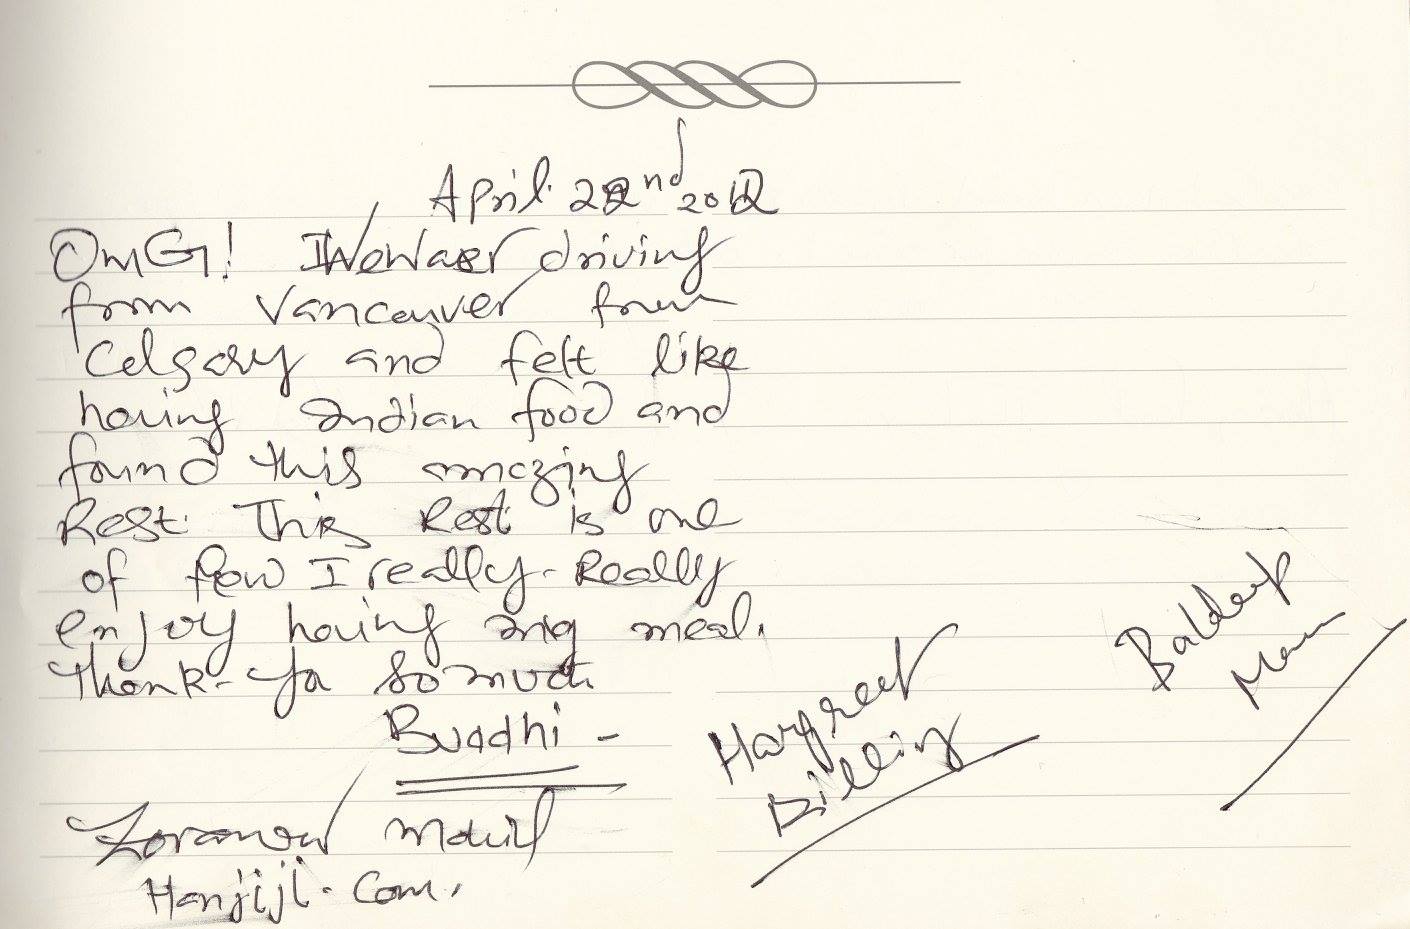 April 22nd 2012
OMG! We were driving
from Vancouver from
Calgary and felt like
having Indian food and
found this amazing
Rest. This Rest. is one
of few I really-Really
enjoy having meal.
Thank-Ya so much
Buddhi -
Hanjiji.com.
Harpreet
Baldeep